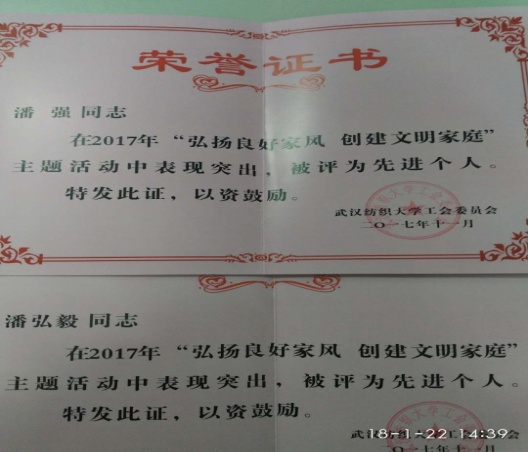 荣誉证书
潘 强 同志
在2017年“弘扬良好家风 创建文明家庭”
主题活动中表现突出，被评为先进个人。
特发此证，以资鼓励。
武汉纺织大学工会委员会
二〇一七年十一月
潘弘毅 同志
在2017年“弘扬良好家风 创建文明家庭”
主题活动中表现突出，被评为先进个人。
特发此证，以资鼓励。
武汉纺织大学工会委员会
18-1-22 14:39